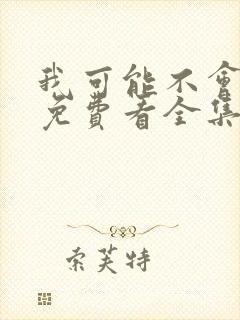 我可能不會
免費看全集
索芙特